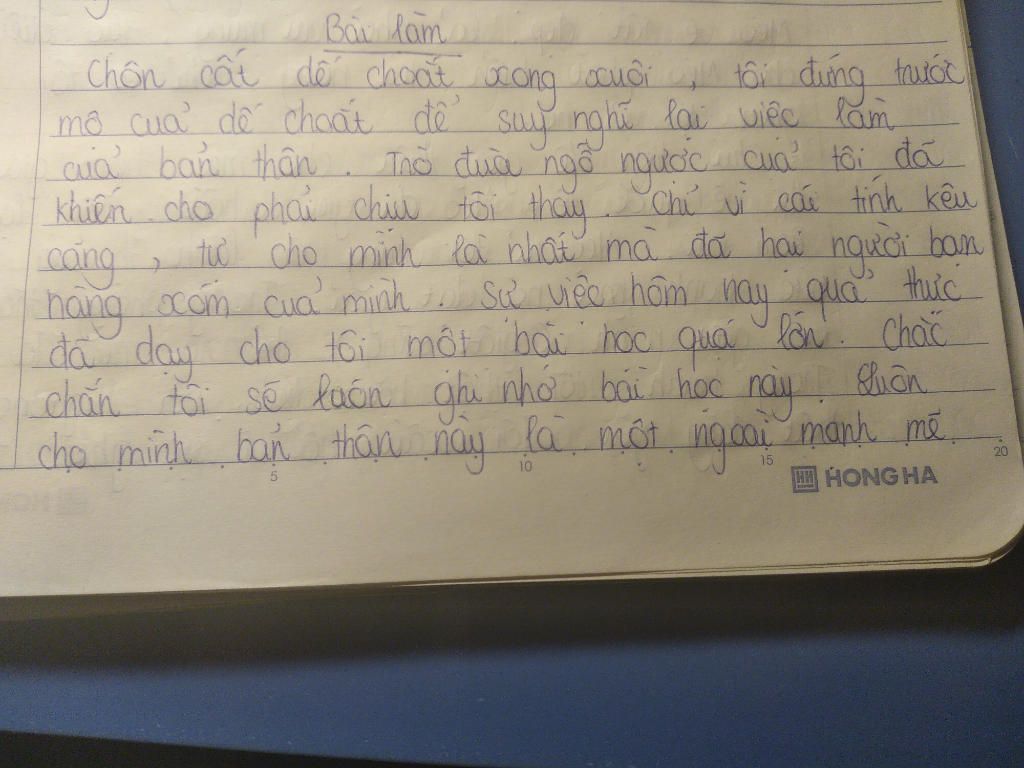 Bài làm
Chôn cất dế choắt xong xuôi, tôi đứng trước
mộ của dế choắt để suy nghĩ lại việc làm
của bản thân. Trò đùa ngỗ ngược của tôi đã
khiến cho phải chịu tội thay. Chỉ vì cái tính kêu
căng, tự cho mình là nhất mà đã hại người bạn
hàng xóm của mình. Sự việc hôm nay quả thực
đã dạy cho tôi một bài học quá lớn. Chắc
chắn tôi sẽ luôn ghi nhớ bài học này. Luôn
cho mình bản thân này là một ngoài mạnh mẽ
5 10 15 20
HONG HA